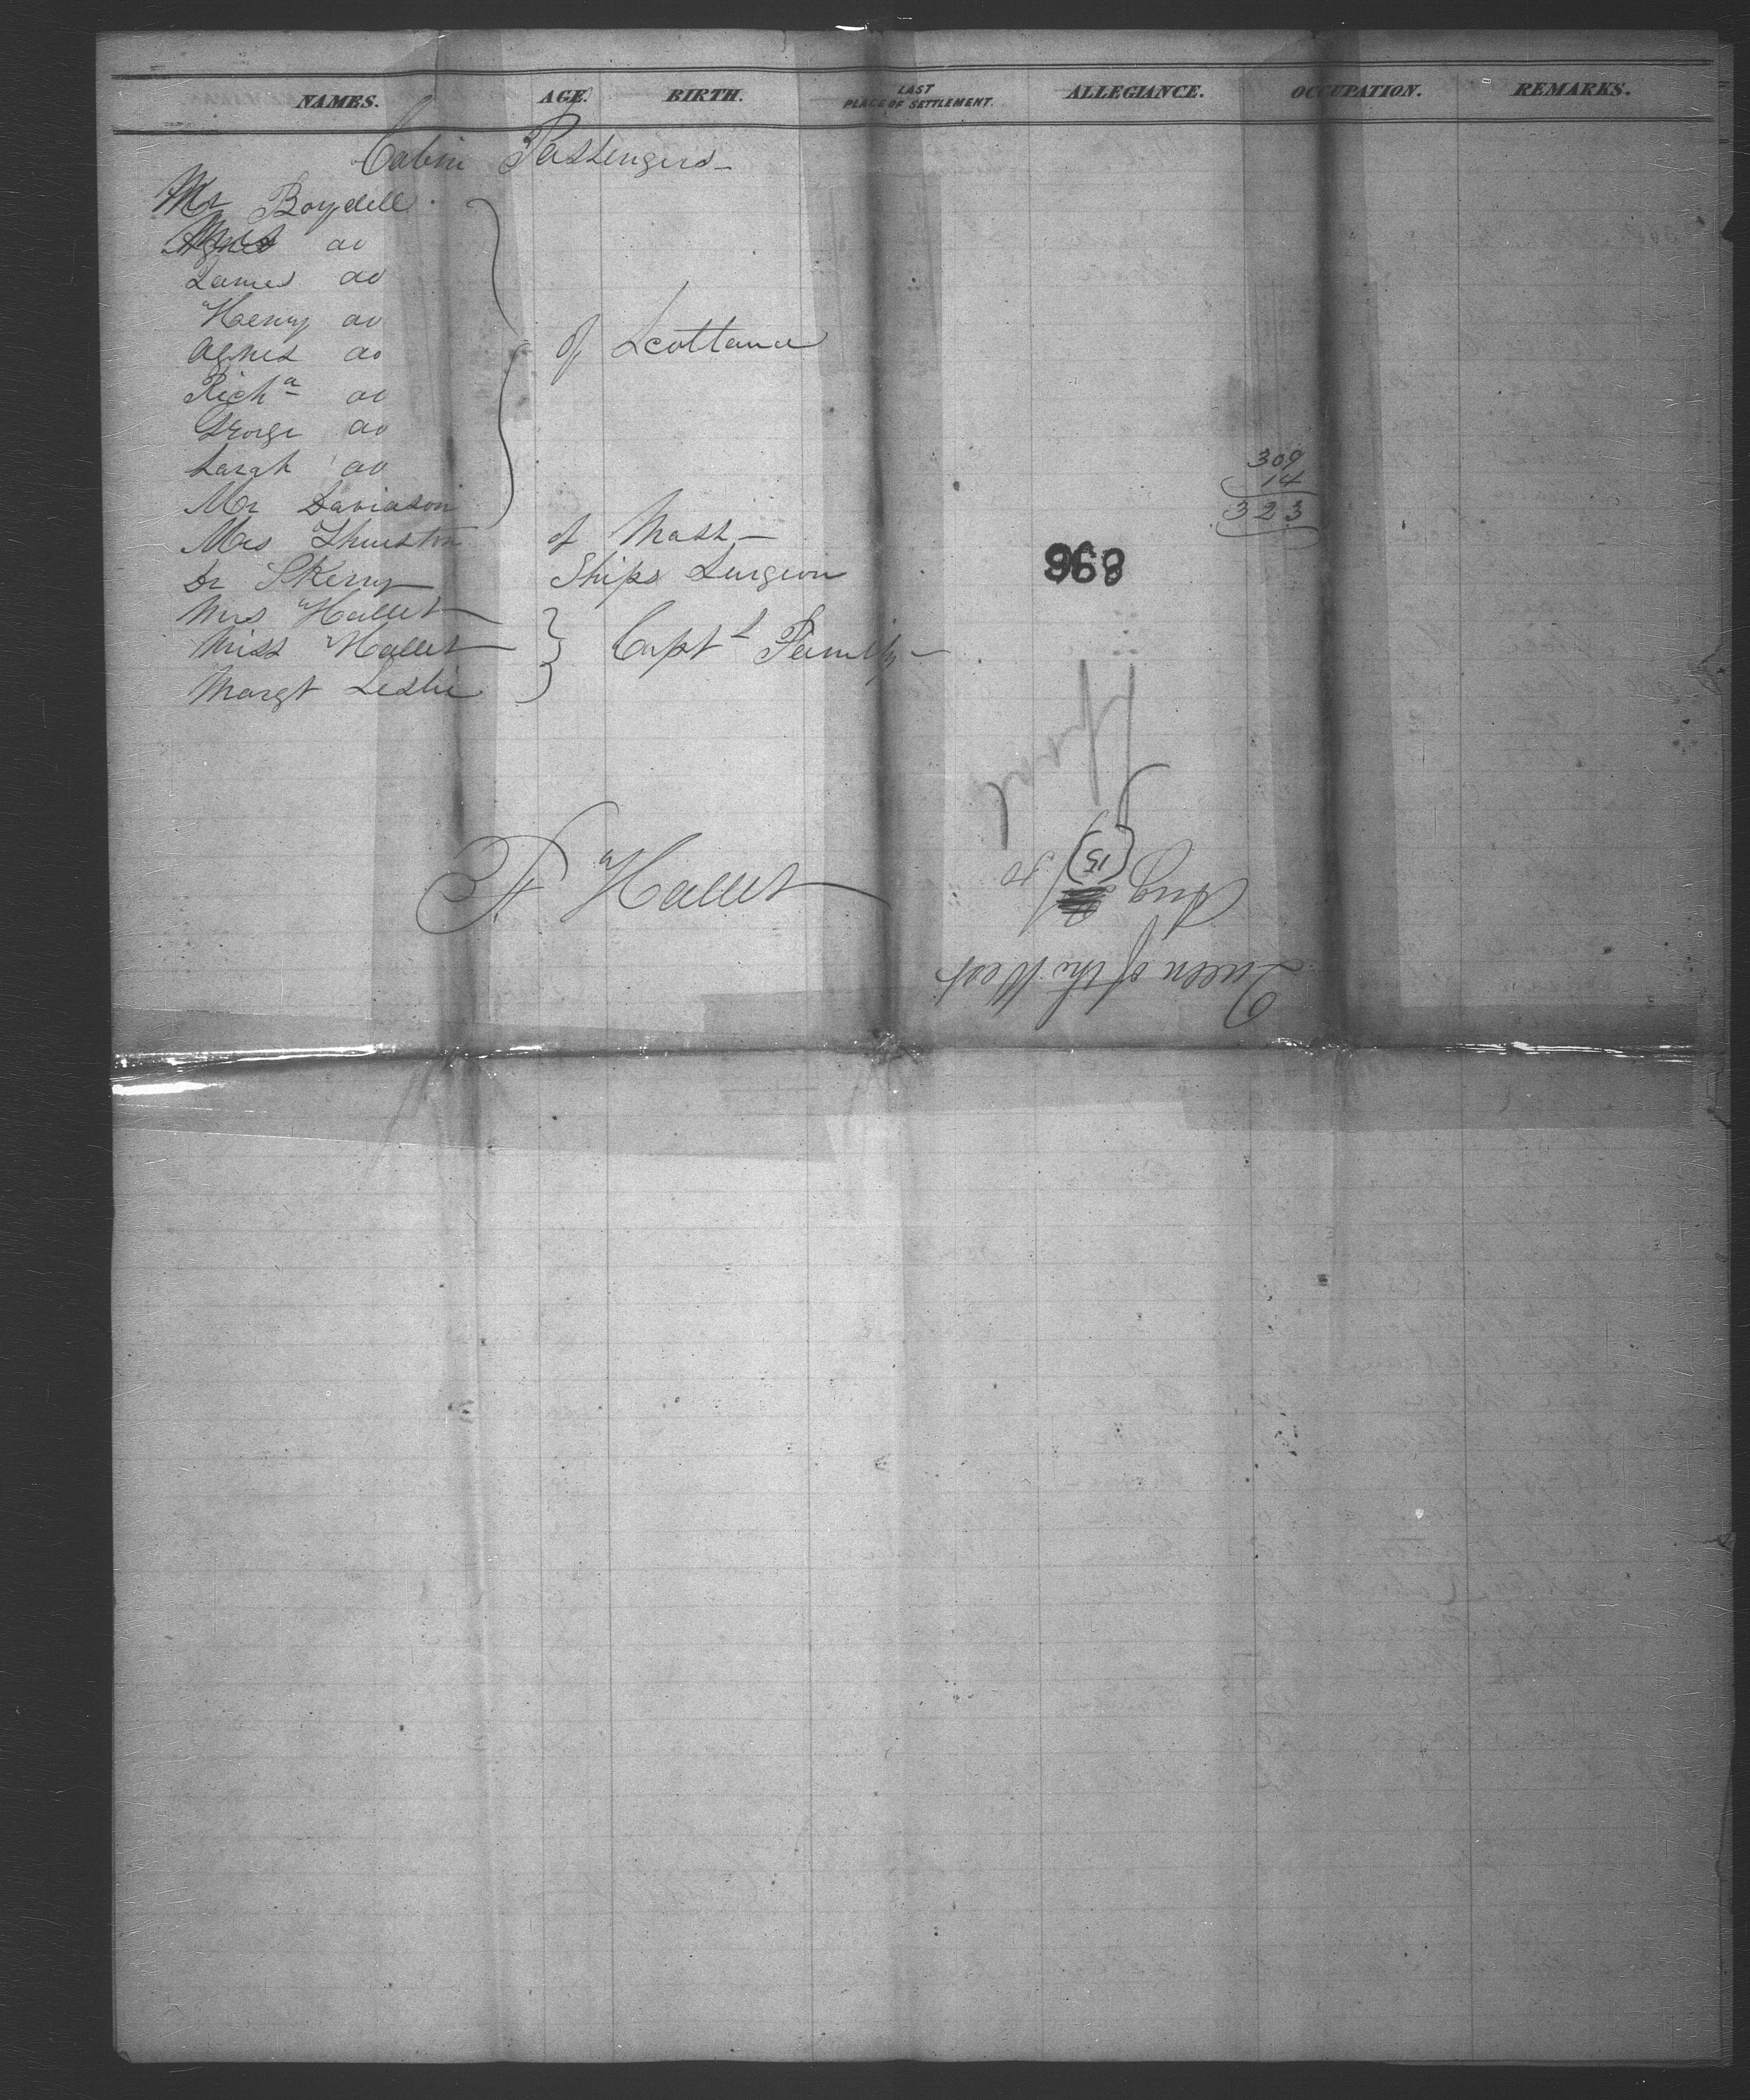 NAMES. AGE. BIRTH. LAST PLACE OF SETTLEMENT. ALLEGIANCE. OCCUPATION. REMARKS.
Cabin Passengers
Mr Boydell
do
James do
Henry do
Agnes do
of Scotland
Richd do
George do
Sarah do
309
14
323
Mr Davidson
Mrs Thurston of Mass
Dr Skerry Ships Surgeon
896
Mrs Hallet
Miss Hallet Capts Family
Margt Leslie
F. Hallet
Queen of the West
Aug (15) 50